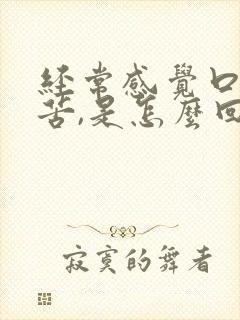 经常感覺口
苦,是怎麼回
寂寞的舞者